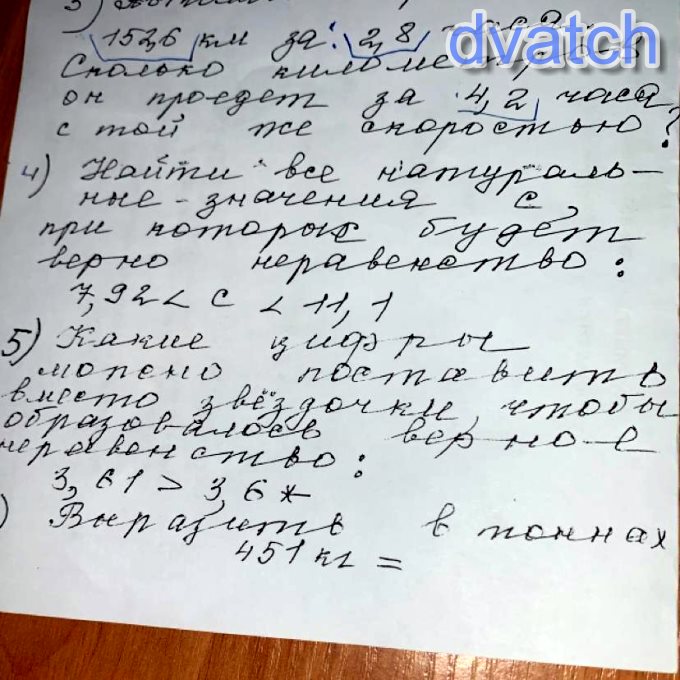 3)
152,6 км за 2,8
dvatch
Сколько
он проедет за 4,2 часа
с той же скоростью?
4) Найти все натураль-
ные значения с,
при которых будет
верно неравенство:
7,92 < с < 11,1
5) Какие цифры
можно поставить
вместо звёздочки, чтобы
образовалось верное
неравенство:
3,61 > 3,6*
) Выразить в тоннах
451 кг =